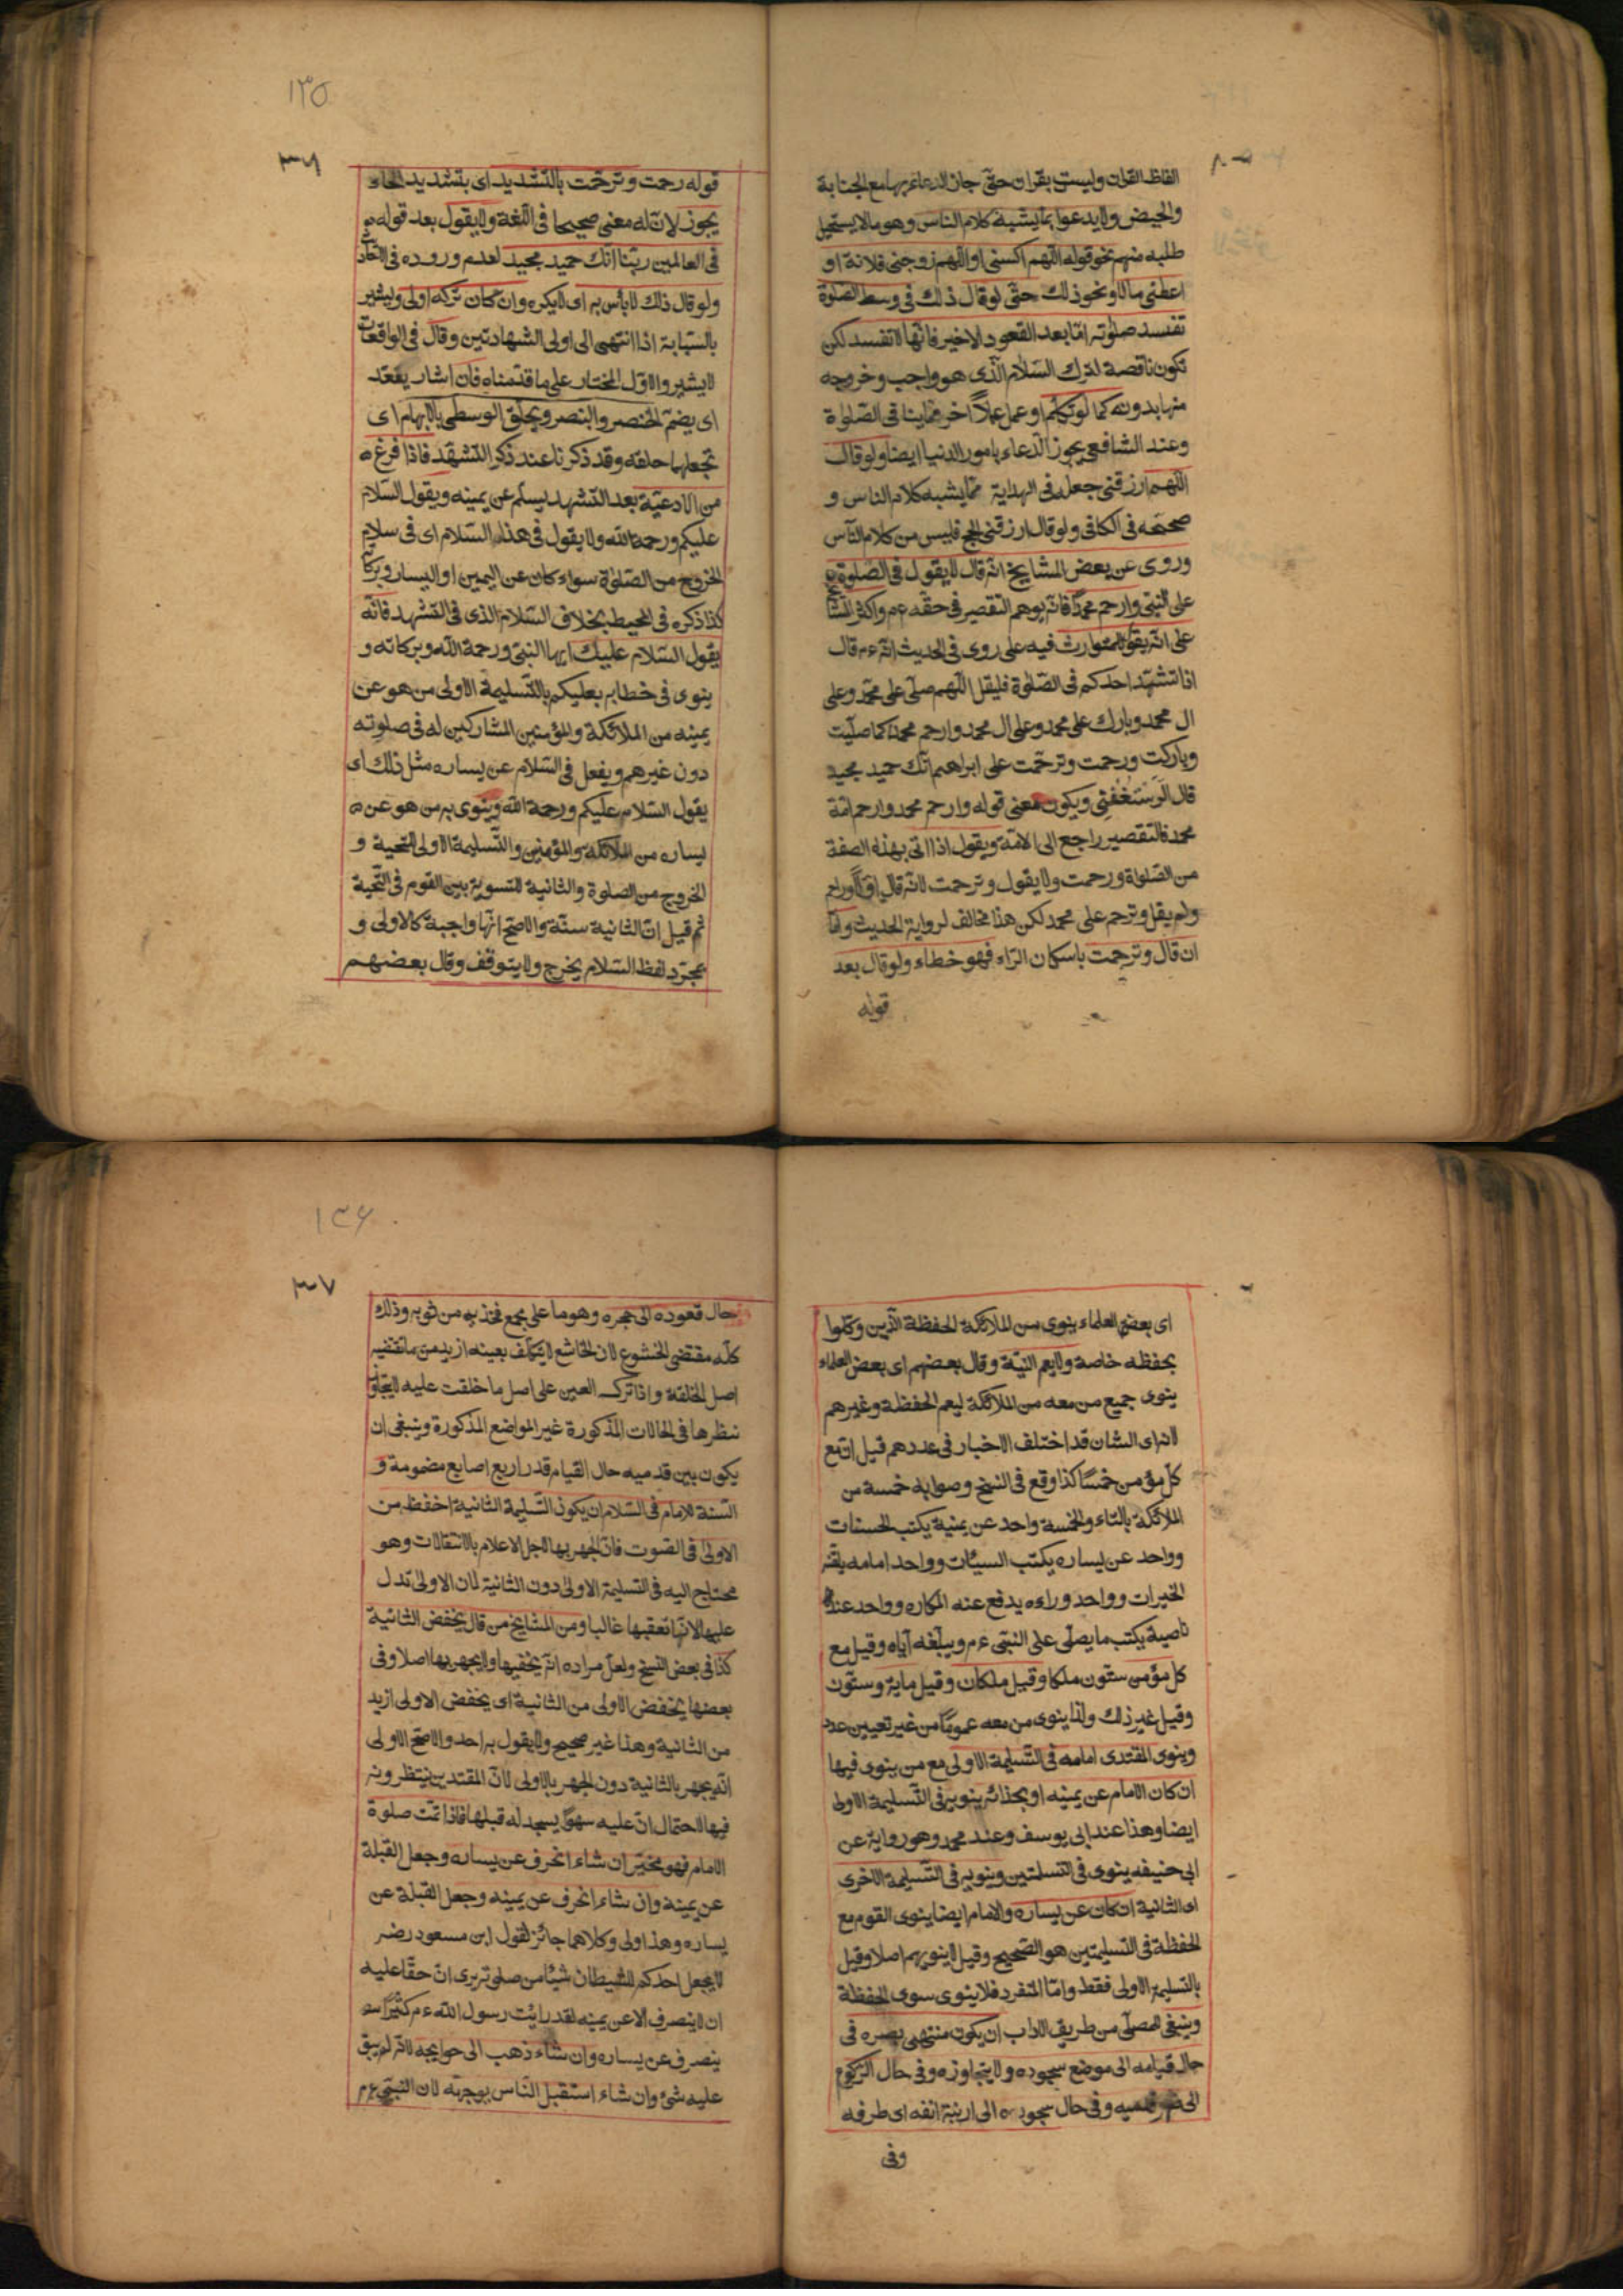 الفاظ القران وليست بقران حتى جاز الدعاء بها مع الجنابة
والحيض ولا يدعوا بما يشبه كلام الناس وهو ما لا يستحيل
طلبه منهم نحو قوله اللهم اكسنى او اللهم زوجنى فلانة او
اعطنى مالا ونحو ذلك حتى لو قال ذلك فى وسط الصلوة
تفسد صلوته امّا بعد القعود الاخير فانها لا تفسد لكن
تكون ناقصة لترك السلام الّذى هو واجب وخروجه
منها بدونه كما لو تكلم او عمل عملاً اخر مما ينافى الصلوة
وعند الشافعى يجوز الدعاء بامور الدنيا ايضا ولو قال
اللهم ارزقنى جعله فى الهداية ممّا يشبه كلام الناس و
صححه فى الكافى ولو قال ارزقنى الحج فليس من كلام الناس
وروى عن بعض المشايخ انه قال لا يقول فى الصلوة
على النبى وارحم محمدًا فانه يوهم التقصير فى حقه ءم واكثر المشايخ
على انه يقول للتوارث فيه على روى فى الحديث انه ءم قال
اذا تشهد احدكم فى الصلوة فليقل اللهم صلّ على محمّد وعلى
ال محمد وبارك على محمد وعلى ال محمد وارحم محمدا كما صلّيت
وباركت ورحمت وترحّمت على ابراهيم انك حميد مجيد
قال الرستغفنى ويكون معنى قوله وارحم محمد وارحم امّة
محمد فالتقصير راجع الى الامّة ويقول اذا اتى بهذه الصفة
من الصلوة ورحمت ولا يقول وترحمت لانّه قال وارحم
ولم يقل وترحم على محمد لكن هذا مخالف لرواية الحديث وامّا
ان قال وترحمت باسكان الرّاء فهو خطاء ولو قال بعد
قوله
١٣٥
٣٦
قوله رحمت وترحّمت بالتشديد اى بتشديد الحاء
يجوز لانّ له معنى صحيحا فى اللغة ولا يقول بعد قوله
فى العالمين ربّنا انّك حميد مجيد لعدم وروده فى
ولو قال ذلك لا بأس به اى لا يكره وان كان تركه اولى ويشير
بالسّبابة اذا انتهى الى اولى الشهادتين وقال فى الواقعات
لا يشير والاوّل المختار على ما قدّمناه فان اشار يعقد
اى يضمّ الخنصر والبنصر ويحلّق الوسطى بالابهام اى
تجعلها حلقه وقد ذكرنا عند ذكر التشهّد فاذا فرغ
من الادعيّة بعد التّشهد يسلّم عن يمينه ويقول السّلام
عليكم ورحمة الله ولا يقول فى هذا السّلام اى فى سلام
الخروج من الصلوة سواء كان عن اليمين او اليسار وبركاته
كذا ذكره فى المحيط بخلاف السّلام الذى فى التشهد فانّه
يقول السّلام عليك ايها النبىّ ورحمة اللّه وبركاته و
ينوى فى خطابه بعليكم بالتّسليمة الاولى من هو عن
يمينه من الملائكة والمؤمنين المشاركين له فى صلوته
دون غيرهم ويفعل فى السّلام عن يساره مثل ذلك اى
يقول السّلام عليكم ورحمة اللّه وينوى به من هو عن
يساره من الملائكة والمؤمنين والتّسليمة الاولى للتحية و
الخروج من الصلوة والثانية للتسوية بين القوم فى التحيّة
ثم قيل انّ الثانية سنّة والاصحّ انّها واجبة كالاولى و
بمجرّد لفظ السّلام يخرج ولا يتوقف وقال بعضهم
اى بعض العلماء ينوى من الملائكة الحفظة الّذين وكلوا
بحفظه خاصة ولا يعم النيّة وقال بعضهم اى بعض العلماء
ينوى جميع من معه من الملائكة ليعم الحفظة وغيرهم
لانه اى الشان قد اختلف الاخبار فى عددهم قيل انّ مع
كلّ مؤمن خمسًا كذا وقع فى النسخ وصوابه خمسة من
الملائكة بالتاء والخمسة واحد عن يمينه يكتب الحسنات
وواحد عن يساره يكتب السيّئات وواحد امامه يلقنه
الخيرات وواحد وراءه يدفع عنه المكاره وواحد عند
ناصيته يكتب ما يصلّى على النبىّ ءم ويبلّغه ايّاه وقيل مع
كل مؤمن ستّون ملكا وقيل ملكان وقيل ماية وستّون
وقيل غير ذلك ولذا ينوى من معه عمومًا من غير تعيين عدد
وينوى المقتدى امامه فى التّسليمة الاولى مع من ينوى فيها
ان كان الامام عن يمينه او بحذائه ينويه فى التّسليمة الاولى
ايضا وهذا عند ابى يوسف وعند محمد وهو رواية عن
ابى حنيفه ينوى فى التسلمتين وينويه فى التّسليمة الاخرى
اى الثانية ان كان عن يساره والامام ايضا ينوى القوم مع
الحفظة فى التسليمتين هو الصّحيح وقيل لا ينويهم اصلا وقيل
بالتسليمة الاولى فقط وامّا المنفرد فلا ينوى سوى الحفظة
وينبغى للمصلّى من طريق الاداب ان يكون منتهى بصره فى
حال قيامه الى موضع سجوده ولا يتجاوزه وفى حال الركوع
الى قدميه وفى حال سجوده الى ارنبة انفه اى طرفه
وفى
١٣٦
٣٧
حال قعوده الى حجره وهو ما على مجمع فخذيه من ثوبه وذلك
كلّه مقتضى الخشوع لان الخاشع لا يتكلّف بعينه ازيد من ما تقتضيه
اصل الخلقة واذا ترك العين على اصل ما خلقت عليه لا يتجاوز
نظرها فى الحالات المذكورة غير المواضع المذكورة وينبغى ان
يكون بين قدميه حال القيام قدر اربع اصابع مضمومة و
السّنة للامام فى السّلام ان يكون التّسليمة الثانية اخفظ من
الاولى فى الصوت فان الجهر بها لاجل الاعلام بالانتقالات وهو
محتاج اليه فى التسليمة الاولى دون الثانية لان الاولى تدل
عليها لانها تعقبها غالبا ومن المشايخ من قال يخفض الثانية
كذا فى بعض النسخ ولعلّ مراده انّه يخفيها ولا يجهر بها اصلا وفى
بعضها يخفض الاولى من الثانية اى يخفض الاولى ازيد
من الثانية وهذا غير صحيح ولا يقول به احد والاصحّ الاولى
انّه يجهر بالثانية دون الجهر بالاولى لانّ المقتدين ينتظرونه
فيها لاحتمال انّ عليه سهوًا يسجد له قبلها فاذا تمّت صلوة
الامام فهو مخيّر ان شاء انحرف عن يساره وجعل القبلة
عن يمينه وان شاء انحرف عن يمينه وجعل القبلة عن
يساره وهذا اولى وكلاهما جائز لقول ابن مسعود رضه
لا يجعل احدكم للشيطان شيئا من صلوته يرى انّ حقّا عليه
ان لا ينصرف الا عن يمينه لقد رايت رسول اللّه ءم كثيرًا
ينصرف عن يساره وان شاء ذهب الى حوايجه لانّه لم يبق
عليه شئ وان شاء استقبل النّاس بوجهه لان النبىّ ءم